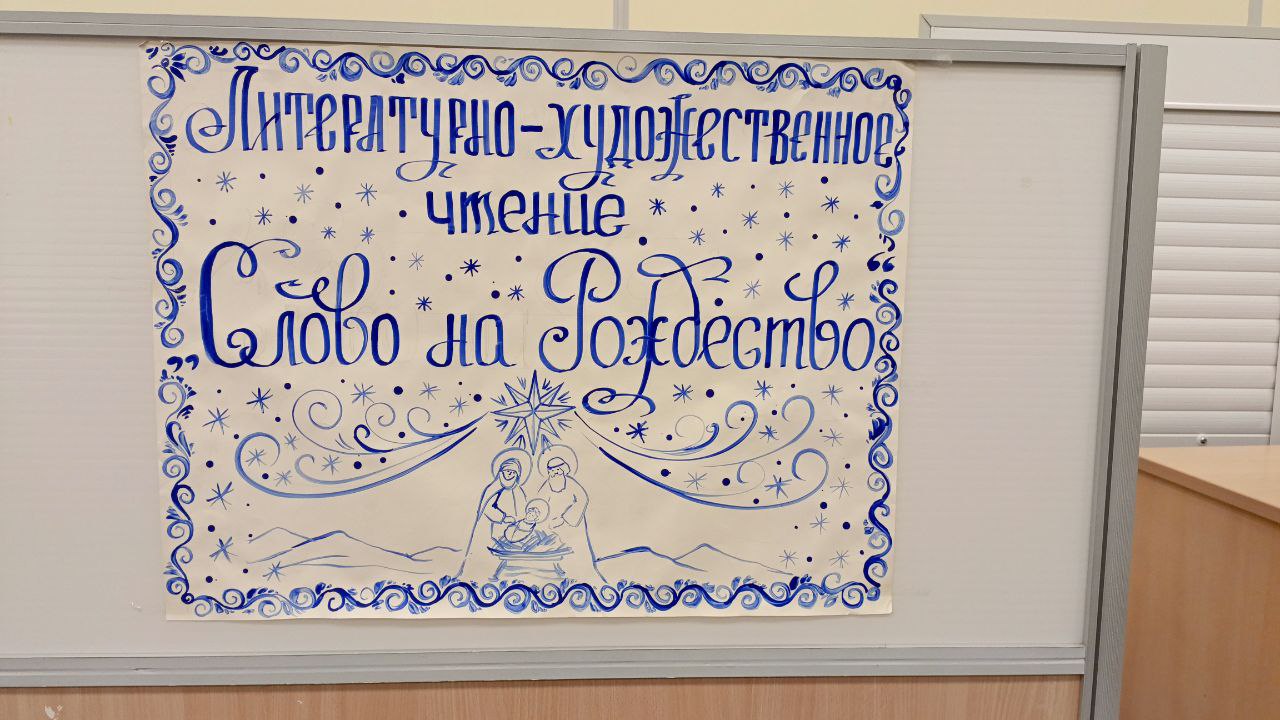 Литературно-художественное
чтение
„Слово на Рождество“